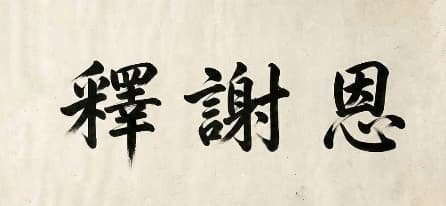 釋謝恩